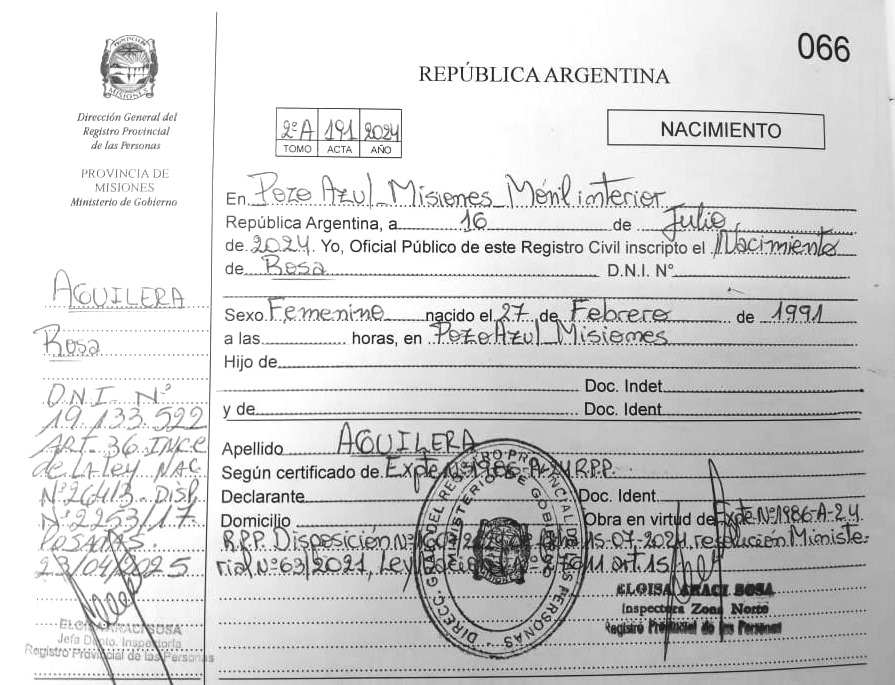 066
REPÚBLICA ARGENTINA
PROVINCIA DE
MISIONES
Dirección General del
Registro Provincial
de las Personas
PROVINCIA DE
MISIONES
Ministerio de Gobierno
2º A 191 2024
TOMO ACTA AÑO
NACIMIENTO
En Pozo Azul_Misiones_Móvil interior
República Argentina, a 16 de Julio
de 2024. Yo, Oficial Público de este Registro Civil inscripto el Nacimiento
de Rosa D.N.I. Nº
Sexo Femenino nacido el 27 de Febrero de 1991
a las horas, en Pozo Azul_Misiones
Hijo de
Doc. Indet
y de Doc. Ident
Apellido AGUILERA
Según certificado de Expte Nº 1986-A-24 R.P.P.
Declarante Doc. Ident.
Domicilio Obra en virtud de Expte Nº 1986-A-24
R.P.P. Disposición Nº 15-07-2024, resolución Ministe-
rial Nº 63/2021, Ley Nº art. 15
AGUILERA
Rosa
D.N.I. Nº
19.133.522
ART. 36 INC c
de LA Ley NAC
Nº 26413 - DISP.
Nº 2253/17
POSADAS.
23/04/2025
ELOISA ARACI SOSA
Jefa Dpto. Inspectoría
Registro Provincial de las Personas
DIRECC. GRAL. DEL REGISTRO PROVINCIAL DE LAS PERSONAS
MINISTERIO DE GOBIERNO
ELOISA ARACI SOSA
Inspectora Zona Norte
Registro Provincial de las Personas